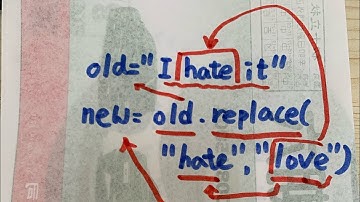 old="I hate it"
new=old.replace(
"hate","love")